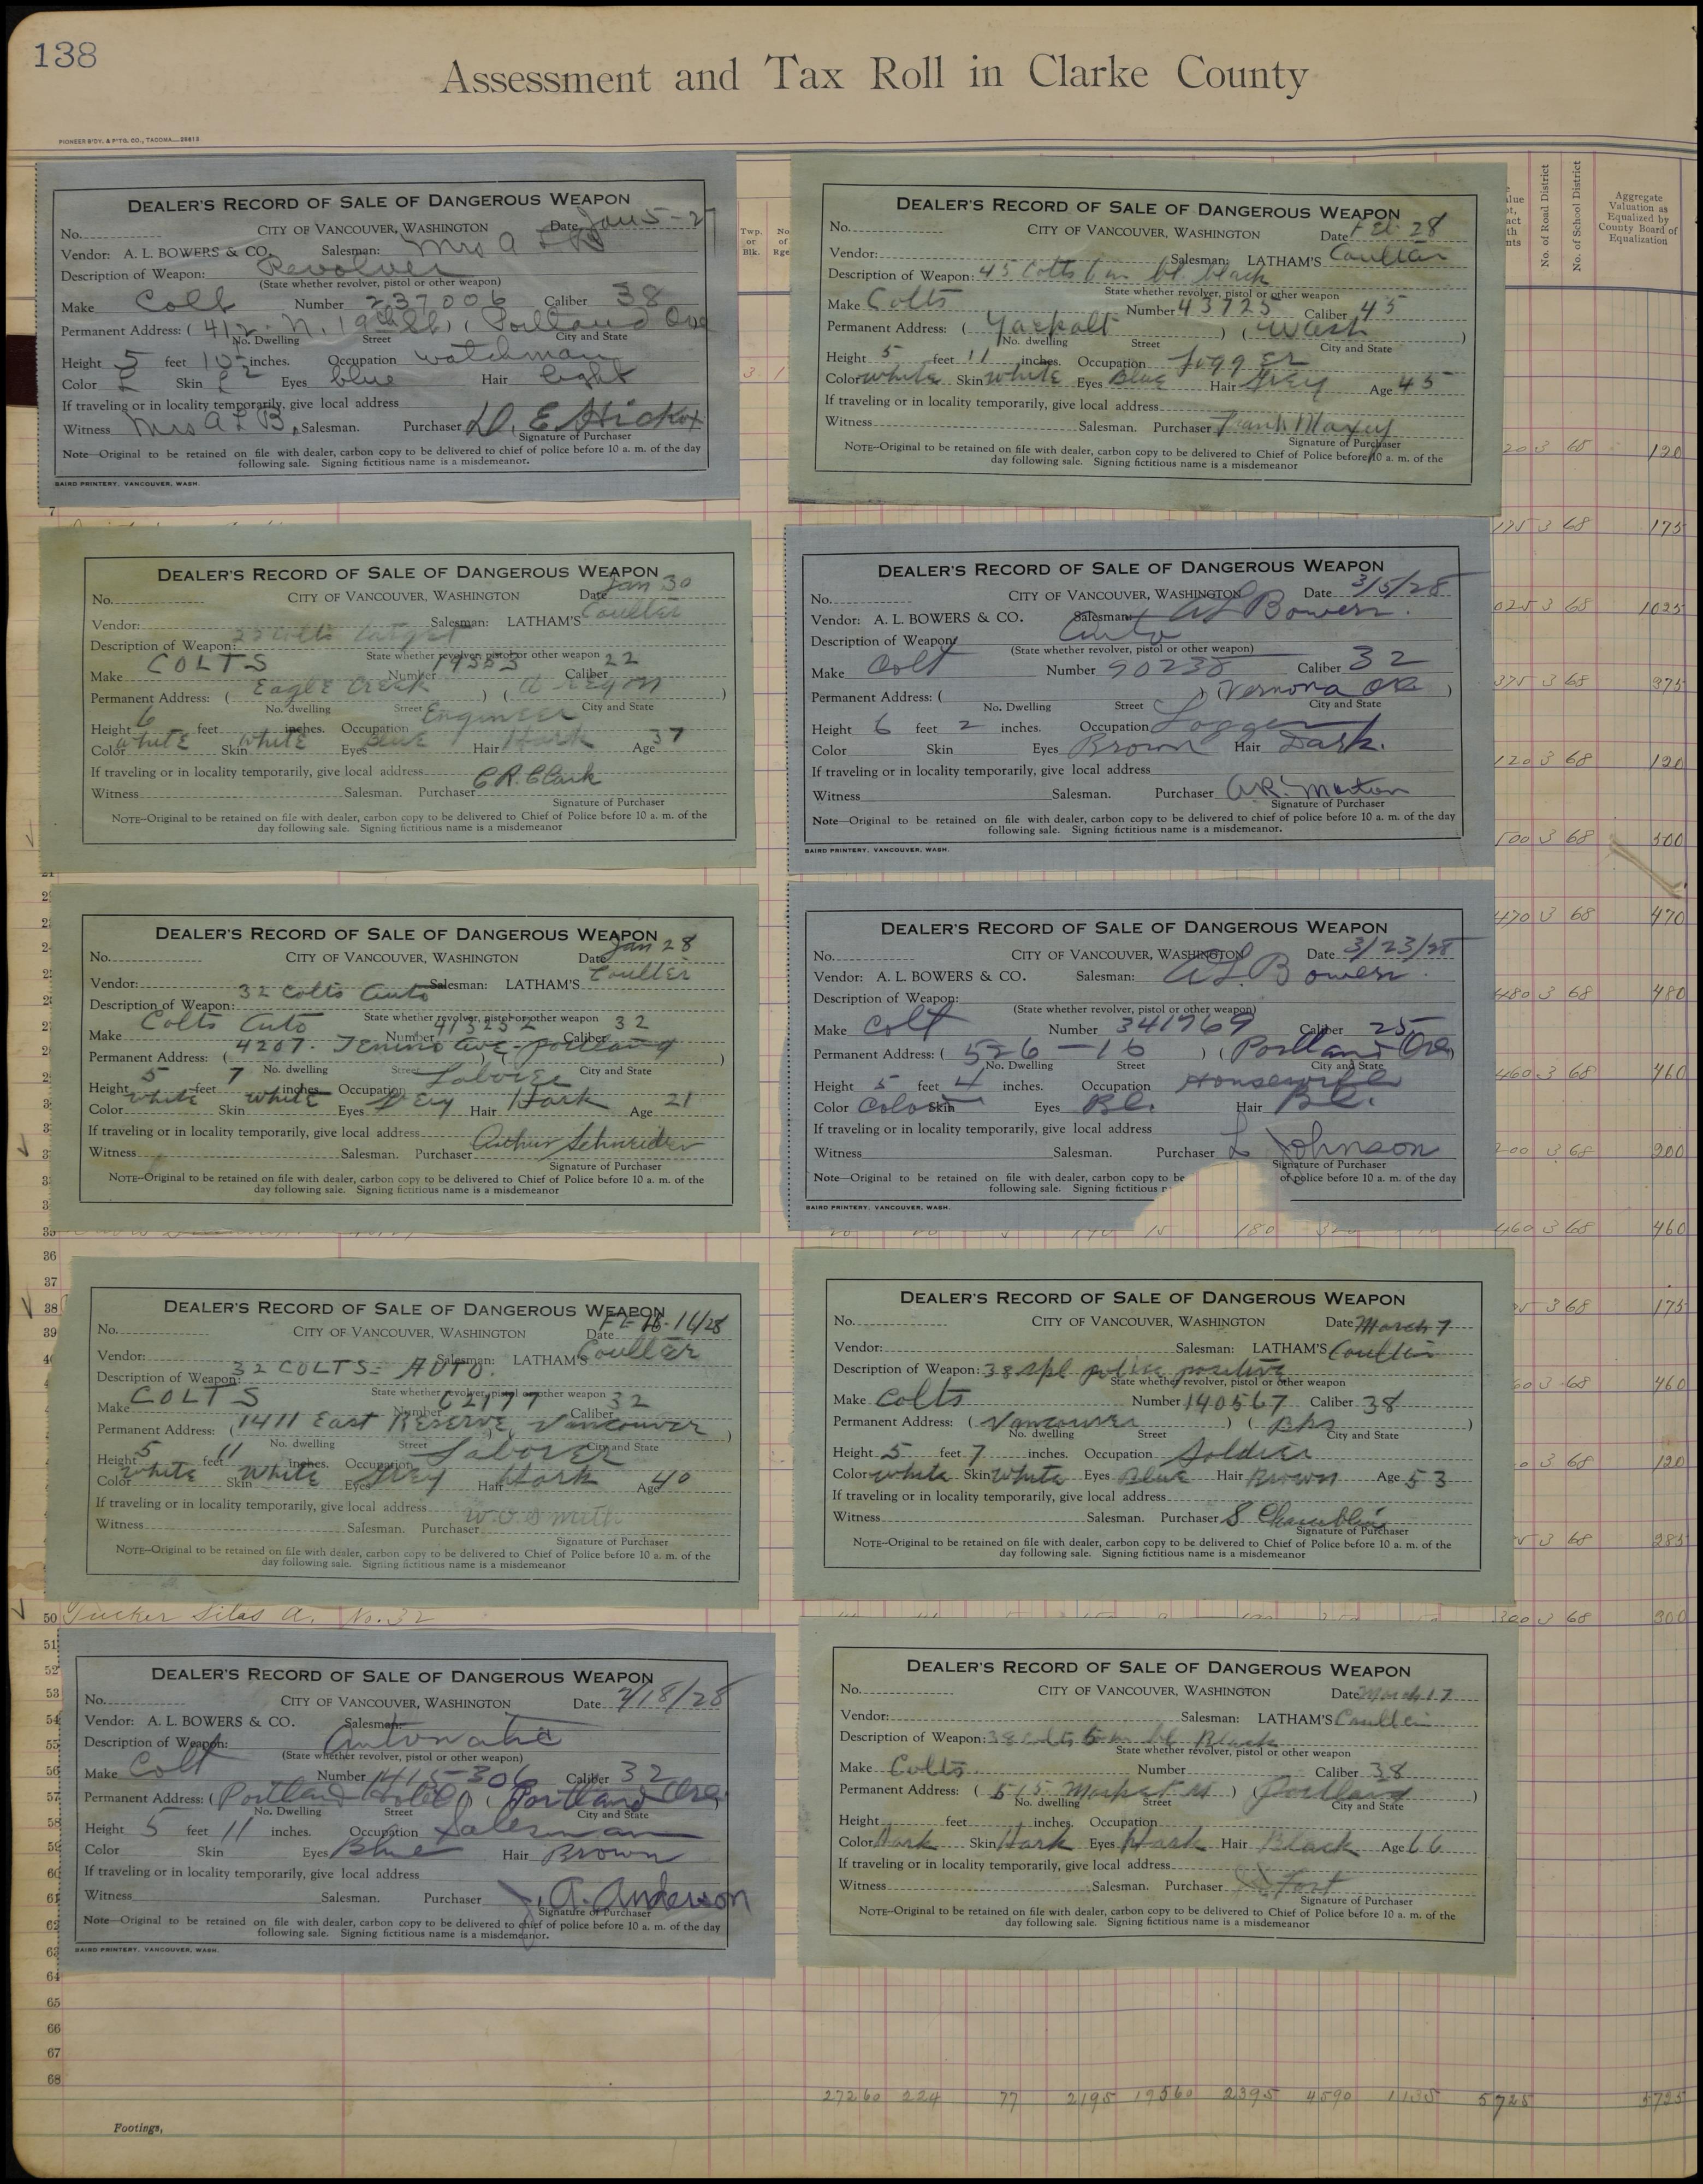 138
Assessment and Tax Roll in Clarke County
PIONEER B'DY. & P'TG. CO., TACOMA
DEALER'S RECORD OF SALE OF DANGEROUS WEAPON
No. CITY OF VANCOUVER, WASHINGTON Date Jan 5-27
Vendor: A. L. BOWERS & CO. Salesman: Mrs A L B
Description of Weapon: Revolver
(State whether revolver, pistol or other weapon)
Make Colt Number 237006 Caliber 38
Permanent Address: ( 412 N. 19th St ) ( Portland Ore
No. Dwelling Street City and State
Height 5 feet 10 inches. Occupation watchman
Color L Skin L Eyes blue Hair light
If traveling or in locality temporarily, give local address
Witness Mrs A L B. Salesman. Purchaser D. E. Hickox
Signature of Purchaser
Note—Original to be retained on file with dealer, carbon copy to be delivered to chief of police before 10 a. m. of the day
following sale. Signing fictitious name is a misdemeanor.
BAIRD PRINTERY, VANCOUVER, WASH.
DEALER'S RECORD OF SALE OF DANGEROUS WEAPON
No. CITY OF VANCOUVER, WASHINGTON Date Jan 30
Vendor: Salesman: LATHAM'S Coulter
Description of Weapon: 22 Colts Target
State whether revolver, pistol or other weapon
Make COLTS Number Caliber 22
Permanent Address: ( Eagle Creek ) ( Oregon )
No. dwelling Street City and State
Height 6 feet inches. Occupation Engineer
Color white Skin white Eyes Blue Hair Dark Age 37
If traveling or in locality temporarily, give local address
Witness Salesman. Purchaser C R. Clark
Signature of Purchaser
NOTE--Original to be retained on file with dealer, carbon copy to be delivered to Chief of Police before 10 a. m. of the
day following sale. Signing fictitious name is a misdemeanor
DEALER'S RECORD OF SALE OF DANGEROUS WEAPON
No. CITY OF VANCOUVER, WASHINGTON Date Jan 28
Vendor: Salesman: LATHAM'S Coulter
Description of Weapon: 32 Colts Auto
State whether revolver, pistol or other weapon
Make Colts Auto Number 413252 Caliber 32
Permanent Address: ( 4207. Tenino Ave - Portland )
No. dwelling Street City and State
Height 5 feet 7 inches. Occupation Laborer
Color white Skin white Eyes Grey Hair Dark Age 21
If traveling or in locality temporarily, give local address
Witness Salesman. Purchaser Arthur Schneider
Signature of Purchaser
NOTE--Original to be retained on file with dealer, carbon copy to be delivered to Chief of Police before 10 a. m. of the
day following sale. Signing fictitious name is a misdemeanor
DEALER'S RECORD OF SALE OF DANGEROUS WEAPON
No. CITY OF VANCOUVER, WASHINGTON Date
Vendor: Salesman: LATHAM'S Coulter
Description of Weapon: 32 COLTS - AUTO.
State whether revolver, pistol or other weapon
Make COLTS Number 62177 Caliber 32
Permanent Address: ( 1411 East Reserve, Vancouver )
No. dwelling Street City and State
Height 5 feet 11 inches. Occupation Laborer
Color white Skin white Eyes Grey Hair Dark Age 40
If traveling or in locality temporarily, give local address
Witness Salesman. Purchaser W. O. Smith
Signature of Purchaser
NOTE--Original to be retained on file with dealer, carbon copy to be delivered to Chief of Police before 10 a. m. of the
day following sale. Signing fictitious name is a misdemeanor
50 Tucker Silas A. No. 32
DEALER'S RECORD OF SALE OF DANGEROUS WEAPON
No. CITY OF VANCOUVER, WASHINGTON Date 2/18/28
Vendor: A. L. BOWERS & CO. Salesman:
Description of Weapon: Automatic
(State whether revolver, pistol or other weapon)
Make Colt Number 415306 Caliber 32
Permanent Address: ( Portland Hotel ) ( Portland Ore.
No. Dwelling Street City and State
Height 5 feet 11 inches. Occupation Salesman
Color Skin Eyes Blue Hair Brown
If traveling or in locality temporarily, give local address
Witness Salesman. Purchaser J. A. Anderson
Signature of Purchaser
Note—Original to be retained on file with dealer, carbon copy to be delivered to chief of police before 10 a. m. of the day
following sale. Signing fictitious name is a misdemeanor.
BAIRD PRINTERY, VANCOUVER, WASH.
DEALER'S RECORD OF SALE OF DANGEROUS WEAPON
No. CITY OF VANCOUVER, WASHINGTON Date Feb 28
Vendor: Salesman: LATHAM'S Coulter
Description of Weapon: 45 Colts 6 in bl. black
State whether revolver, pistol or other weapon
Make Colts Number 43725 Caliber 45
Permanent Address: ( Yackolt ) ( Wash )
No. dwelling Street City and State
Height 5 feet 11 inches. Occupation Logger
Color white Skin white Eyes Blue Hair Grey Age 45
If traveling or in locality temporarily, give local address
Witness Salesman. Purchaser Frank Maxey
Signature of Purchaser
NOTE--Original to be retained on file with dealer, carbon copy to be delivered to Chief of Police before 10 a. m. of the
day following sale. Signing fictitious name is a misdemeanor
DEALER'S RECORD OF SALE OF DANGEROUS WEAPON
No. CITY OF VANCOUVER, WASHINGTON Date 3/5/28
Vendor: A. L. BOWERS & CO. Salesman: AL Bowers.
Description of Weapon Auto
(State whether revolver, pistol or other weapon)
Make Colt Number 90238 Caliber 32
Permanent Address: ( ) Vernona Ore )
No. Dwelling Street City and State
Height 6 feet 2 inches. Occupation Logger
Color Skin Eyes Brown Hair Dark.
If traveling or in locality temporarily, give local address
Witness Salesman. Purchaser A.R. Morton
Signature of Purchaser
Note—Original to be retained on file with dealer, carbon copy to be delivered to chief of police before 10 a. m. of the day
following sale. Signing fictitious name is a misdemeanor.
BAIRD PRINTERY, VANCOUVER, WASH.
DEALER'S RECORD OF SALE OF DANGEROUS WEAPON
No. CITY OF VANCOUVER, WASHINGTON Date 3/23/28
Vendor: A. L. BOWERS & CO. Salesman: A L. Bowers.
Description of Weapon:
(State whether revolver, pistol or other weapon)
Make Colt Number 341769 Caliber 25
Permanent Address: ( 526 - 16 ) ( Portland Ore )
No. Dwelling Street City and State
Height 5 feet 4 inches. Occupation Housewife
Color Color Skin Eyes Bl. Hair Bl.
If traveling or in locality temporarily, give local address
Witness Salesman. Purchaser L Johnson
Signature of Purchaser
Note—Original to be retained on file with dealer, carbon copy to be of police before 10 a. m. of the day
following sale. Signing fictitious
BAIRD PRINTERY, VANCOUVER, WASH.
DEALER'S RECORD OF SALE OF DANGEROUS WEAPON
No. CITY OF VANCOUVER, WASHINGTON Date March 7
Vendor: Salesman: LATHAM'S Coulter
Description of Weapon: 38 spl police positive
State whether revolver, pistol or other weapon
Make Colts Number 140567 Caliber 38
Permanent Address: ( Vancouver ) ( Bks )
No. dwelling Street City and State
Height 5 feet 7 inches. Occupation Soldier
Color white Skin white Eyes Blue Hair Brown Age 53
If traveling or in locality temporarily, give local address
Witness Salesman. Purchaser S
Signature of Purchaser
NOTE--Original to be retained on file with dealer, carbon copy to be delivered to Chief of Police before 10 a. m. of the
day following sale. Signing fictitious name is a misdemeanor
DEALER'S RECORD OF SALE OF DANGEROUS WEAPON
No. CITY OF VANCOUVER, WASHINGTON Date March 17
Vendor: Salesman: LATHAM'S Coulter
Description of Weapon: 38 Colts 5 in bl Black
State whether revolver, pistol or other weapon
Make Colts. Number Caliber 38
Permanent Address: ( 515 Market St ) ( Portland )
No. dwelling Street City and State
Height feet inches. Occupation
Color Dark Skin Dark Eyes Dark Hair Black Age 66
If traveling or in locality temporarily, give local address
Witness Salesman. Purchaser Fort
Signature of Purchaser
NOTE--Original to be retained on file with dealer, carbon copy to be delivered to Chief of Police before 10 a. m. of the
day following sale. Signing fictitious name is a misdemeanor
Twp. or Blk.
No. of Road District
No. of School District
Aggregate Valuation as Equalized by County Board of Equalization
3 68 120
3 68 175
3 68 1025
3 68 375
3 68 120
3 68 500
470 3 68 470
480 3 68 480
460 3 68 460
200 3 68 200
460 3 68 460
3 68 175
3 68 460
3 68 120
3 68 285
300 3 68 300
27260 224 77 2195 19560 2395 4590 1135 5725 5725
Footings,